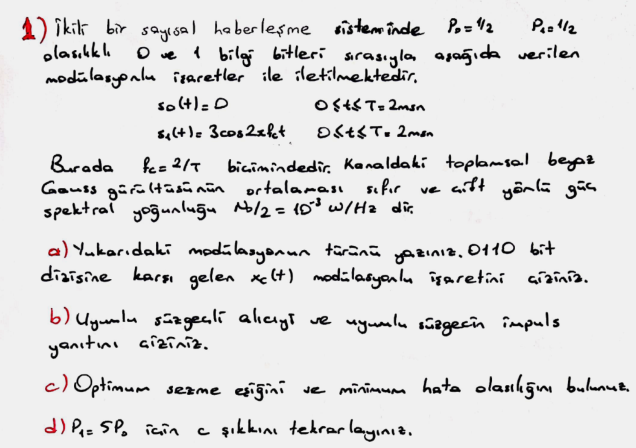 1) İkili bir sayısal haberleşme sisteminde P₀=1/2 P₁=1/2
olasılıklı 0 ve 1 bilgi bitleri sırasıyla aşağıda verilen
modülasyonlu işaretler ile iletilmektedir.
s₀(t)=0 0≤t≤T=2msn
s₁(t)=3cos2πfct 0≤t≤T=2msn
Burada fc=2/T biçimindedir. Kanaldaki toplamsal beyaz
Gauss gürültüsünün ortalaması sıfır ve çift yönlü güç
spektral yoğunluğu N₀/2=10⁻³ W/Hz dir.
a) Yukarıdaki modülasyonun türünü yazınız. 0110 bit
dizisine karşı gelen xc(t) modülasyonlu işaretini çiziniz.
b) Uyumlu süzgeçli alıcıyı ve uyumlu süzgecin impuls
yanıtını çiziniz.
c) Optimum sezme eşiğini ve minimum hata olasılığını bulunuz.
d) P₁=5P₀ için c şıkkını tekrarlayınız.